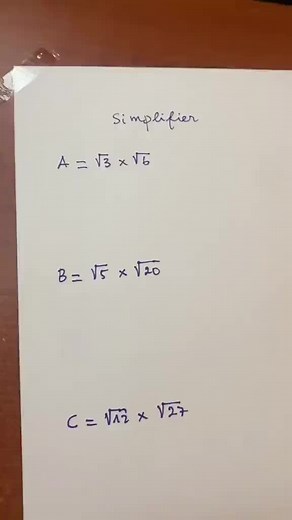 Simplifier
A = √3 × √6
B = √5 × √20
C = √12 × √27